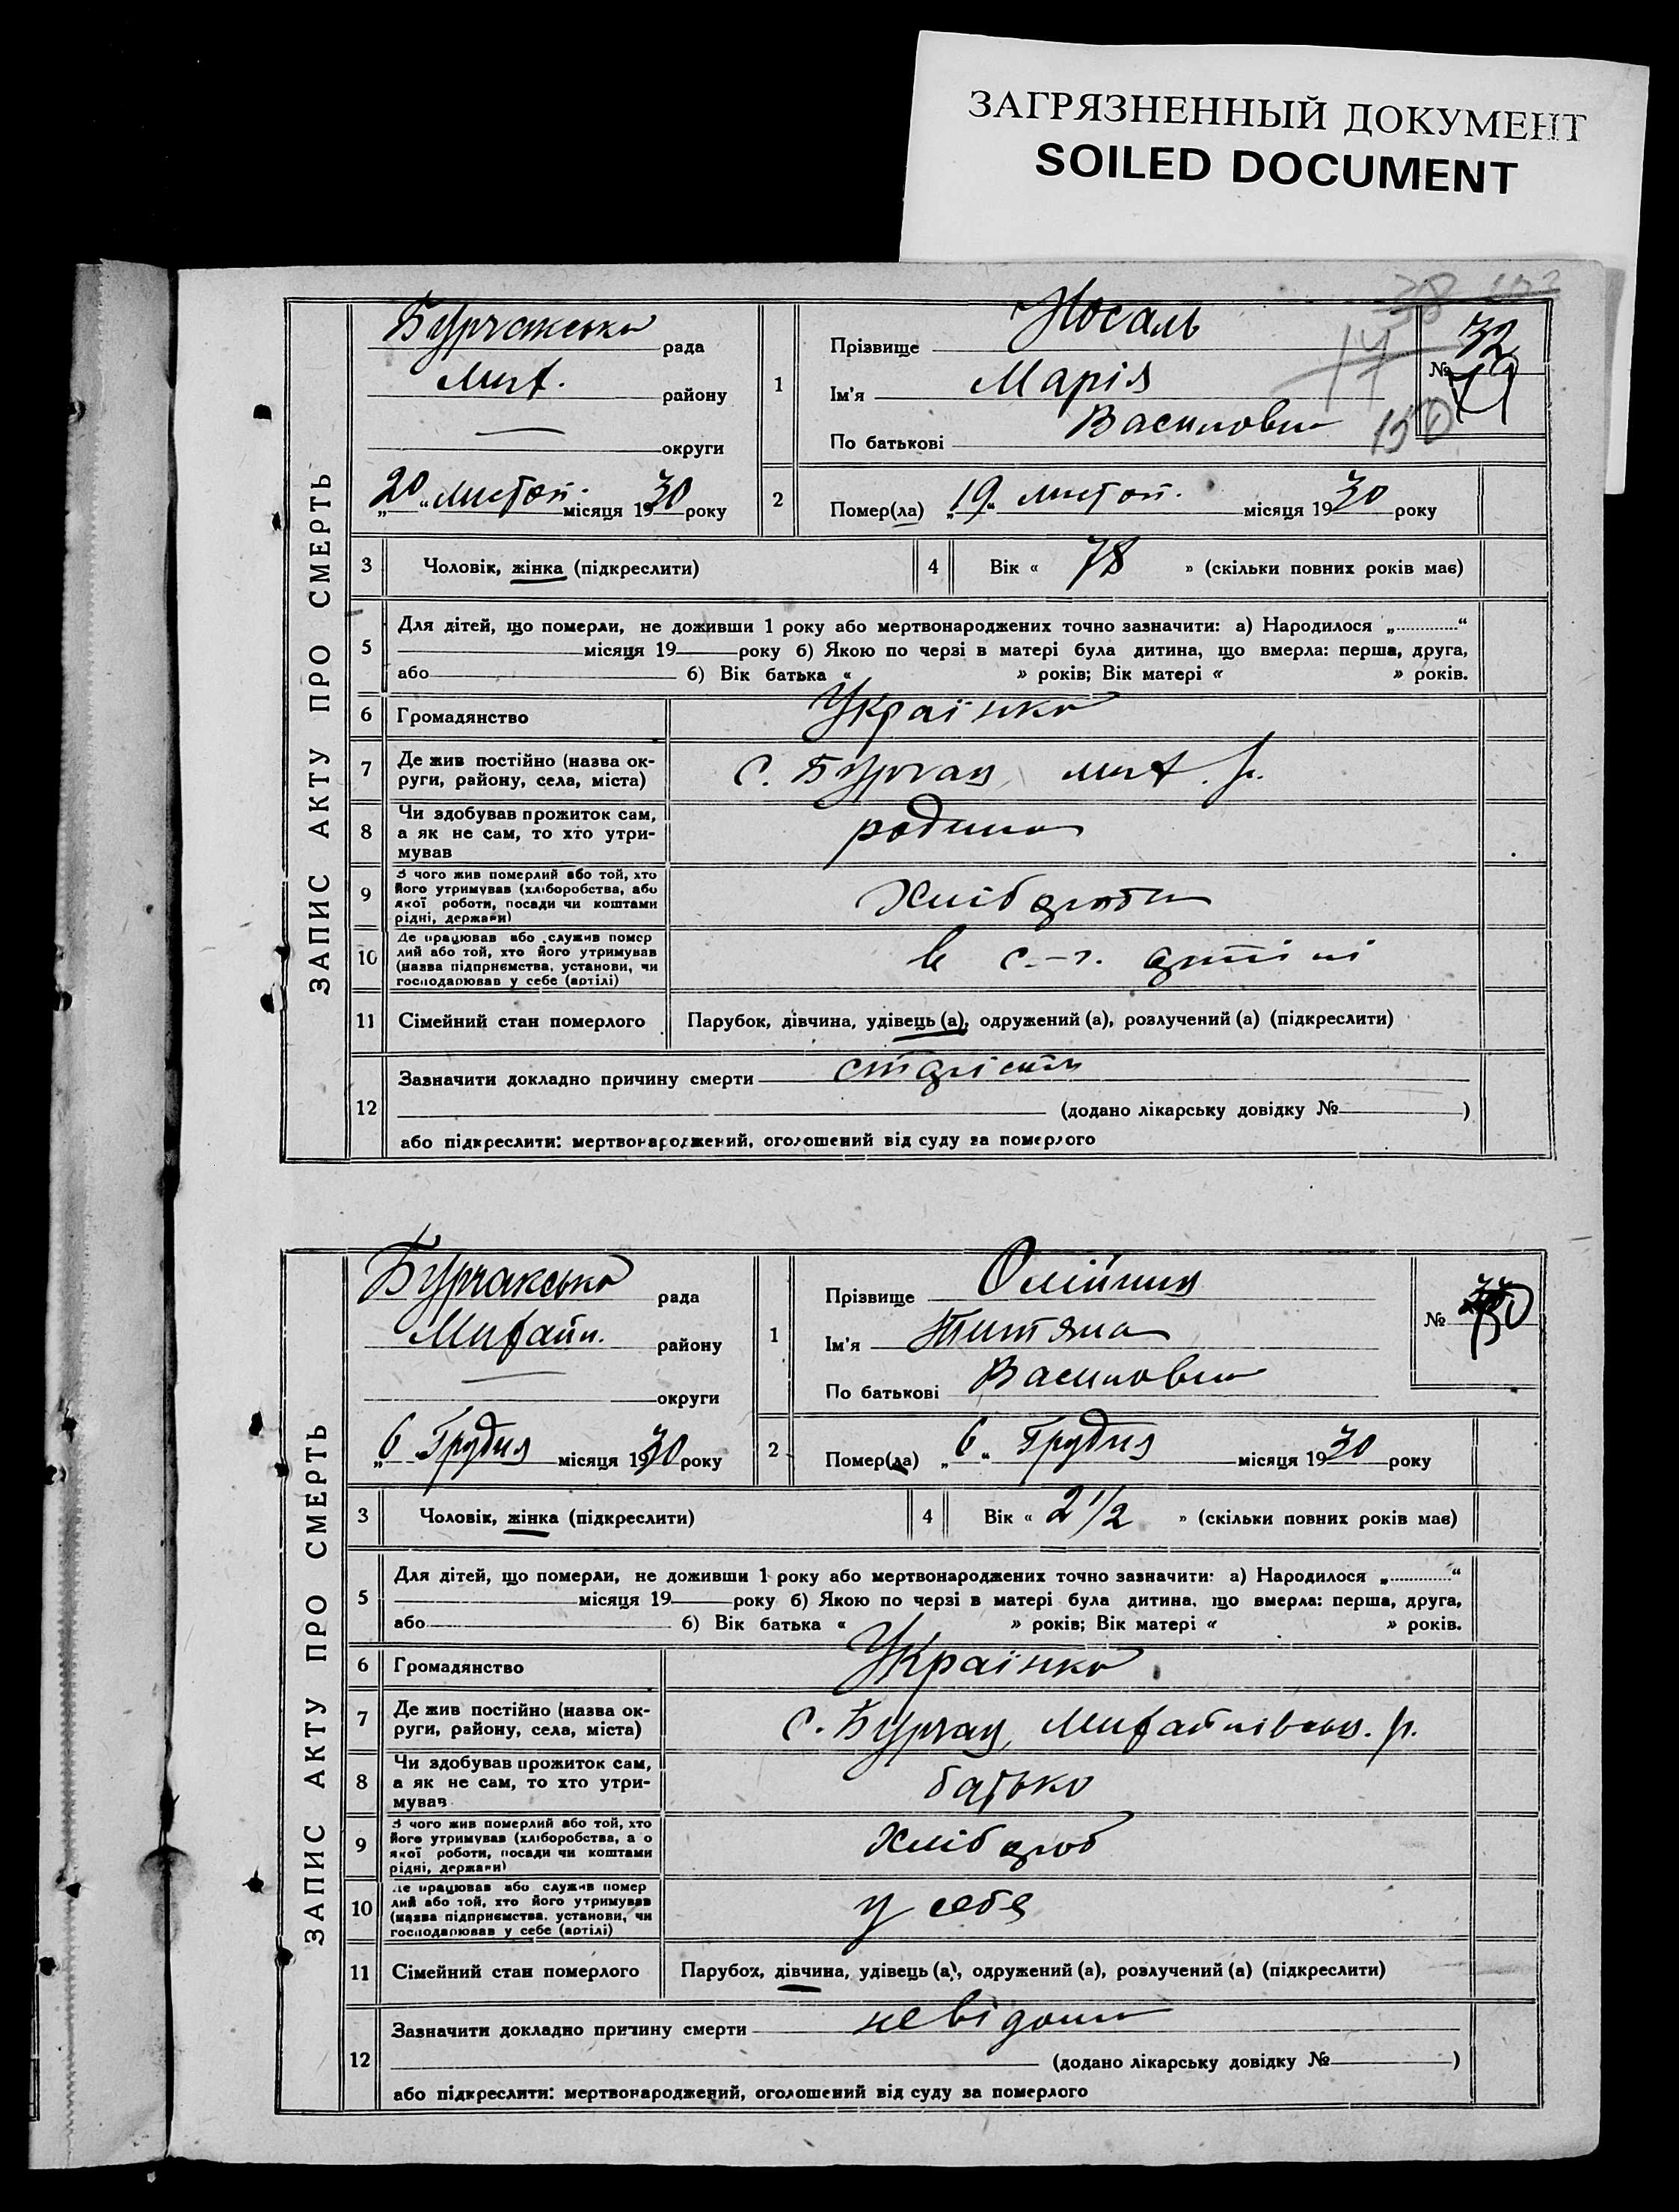 ЗАГРЯЗНЕННЫЙ ДОКУМЕНТ
SOILED DOCUMENT
ЗАПИС АКТУ ПРО СМЕРТЬ
Бурчакська рада
Мих. району
округи
„20“ листоп. місяця 1930 року
1
Прізвище Носаль
Ім'я Марія
По батькові Василовна
№ 32
150
2
Помер(ла) „19“ листоп. місяця 1930 року
3 Чоловік, жінка (підкреслити)
4 Вік « 78 » (скільки повних років має)
5 Для дітей, що померли, не доживши 1 року або мертвонароджених точно зазначити: а) Народилося „............“
місяця 19 року б) Якою по черзі в матері була дитина, що вмерла: перша, друга,
або б) Вік батька « » років; Вік матері « » років.
6 Громадянство Українка
7 Де жив постійно (назва ок-
руги, району, села, міста)
с. Бурчак, Мих. р.
8 Чи здобував прожиток сам,
а як не сам, то хто утри-
мував
родина
9 З чого жив померлий або той, хто
його утримував (хліборобства, або
якої роботи, посади чи коштами
рідні, держави)
10 Де працював або служив помер
лий або той, хто його утримував
(назва підприємства, установи, чи
господарював у себе (артілі)
в с.-г. артілі
11 Сімейний стан померлого Парубок, дівчина, удівець (а), одружений (а), розлучений (а) (підкреслити)
12 Зазначити докладно причину смерти старість
(додано лікарську довідку № )
або підкреслити: мертвонароджений, оголошений від суду за померлого
ЗАПИС АКТУ ПРО СМЕРТЬ
Бурчакська рада
Михайл. району
округи
„6 Грудня місяця 1930 року
1
Прізвище Олійник
Ім'я Титяна
По батькові Василовна
№
2
Помер(ла) „6“ Грудня місяця 1930 року
3 Чоловік, жінка (підкреслити)
4 Вік « 2 1/2 » (скільки повних років має)
5 Для дітей, що померли, не доживши 1 року або мертвонароджених точно зазначити: а) Народилося „............“
місяця 19 року б) Якою по черзі в матері була дитина, що вмерла: перша, друга,
або б) Вік батька « » років; Вік матері « » років.
6 Громадянство Українка
7 Де жив постійно (назва ок-
руги, району, села, міста)
с. Бурчак, Михайлівськ. р.
8 Чи здобував прожиток сам,
а як не сам, то хто утри-
мував
батько
9 З чого жив померлий або той, хто
його утримував (хліборобства, або
якої роботи, посади чи коштами
рідні, держави)
Хлібороб
10 Де працював або служив помер
лий або той, хто його утримував
(назва підприємства, установи, чи
господарював у себе (артілі)
у себе
11 Сімейний стан померлого Парубок, дівчина, удівець (а), одружений (а), розлучений (а) (підкреслити)
12 Зазначити докладно причину смерти невідома
(додано лікарську довідку № )
або підкреслити: мертвонароджений, оголошений від суду за померлого